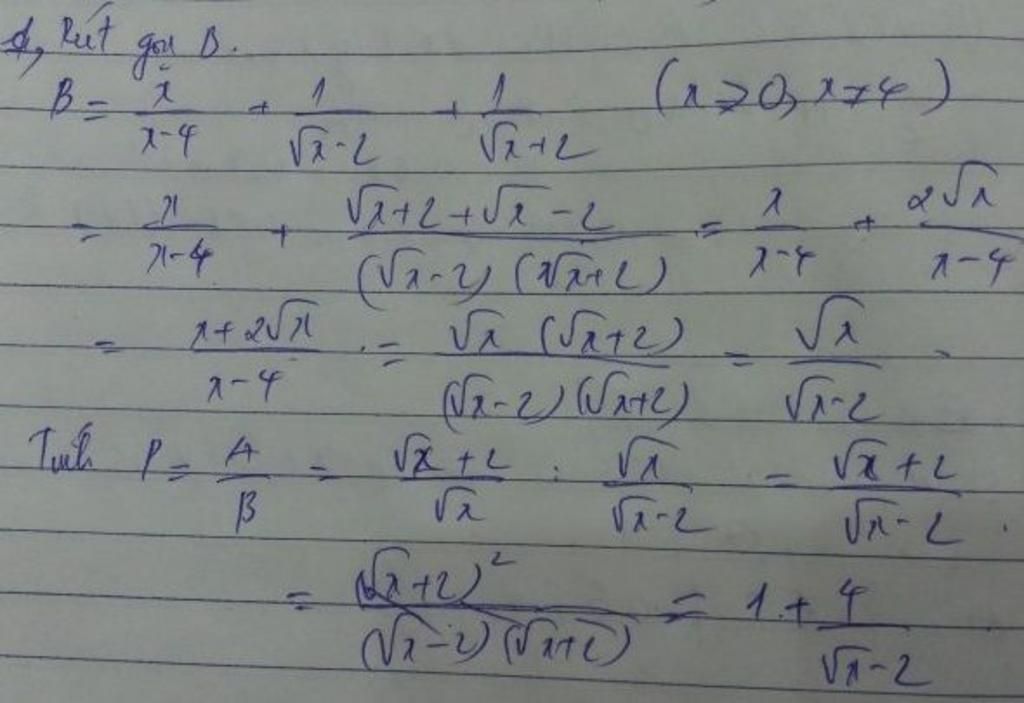 d, Rút gọn B.
B = x/(x-4) + 1/(√x-2) + 1/(√x+2) (x ≥ 0, x ≠ 4)
= x/(x-4) + (√x+2+√x-2)/((√x-2)(√x+2)) = x/(x-4) + 2√x/(x-4)
= (x+2√x)/(x-4) = √x(√x+2)/((√x-2)(√x+2)) = √x/(√x-2)
Tính P = A/B = (√x+2)/√x : √x/(√x-2) = (√x+2)/(√x-2).
= (√x+2)²/((√x-2)(√x+2)) = 1 + 4/(√x-2)